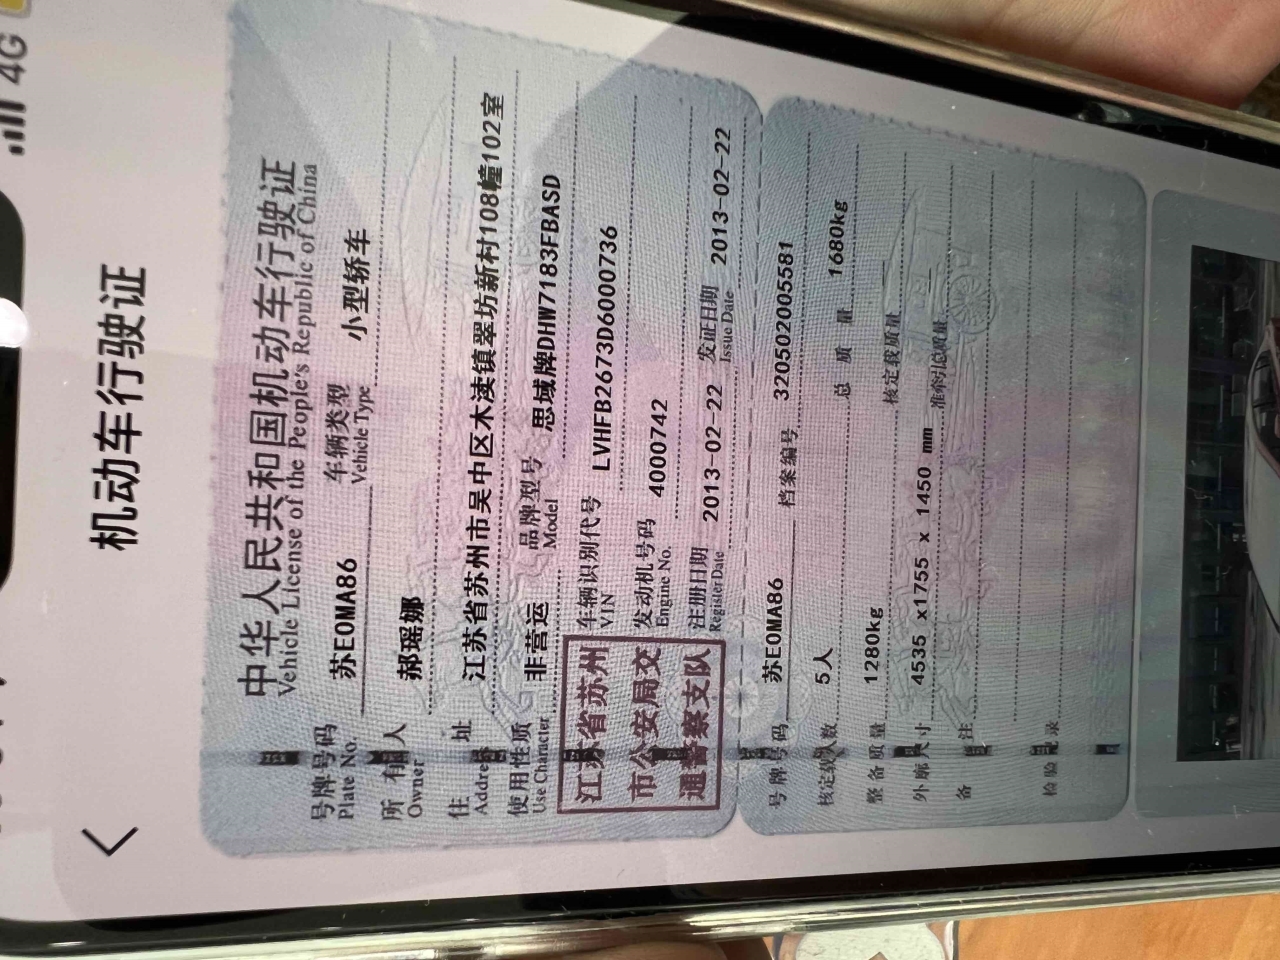 4G
机动车行驶证
中华人民共和国机动车行驶证
Vehicle License of the People's Republic of China
号牌号码 苏E0MA86 车辆类型 小型轿车
Plate No. Vehicle Type
所有人 郝瑶娜
Owner
住址 江苏省苏州市吴中区木渎镇翠坊新村108幢102室
Address
使用性质 非营运 品牌型号 思域牌DHW7183FBASD
Use Character Model
江苏省苏州
市公安局交
通警察支队
车辆识别代号 LVHFB2673D6000736
VIN
发动机号码 4000742
Engine No.
注册日期 2013-02-22 发证日期 2013-02-22
Register Date Issue Date
号牌号码 苏E0MA86 档案编号 320502005581
核定载人数 5人 总质量 1680kg
整备质量 1280kg 核定载质量
外廓尺寸 4535 x1755 x 1450 mm 准牵引总质量
备注
检验记录